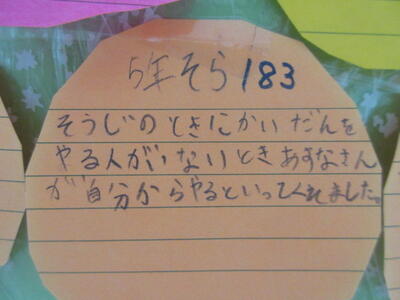 5年そら183
そうじのときにかいだんを
やる人がいないときあすなさん
が自分からやるといってくれました。